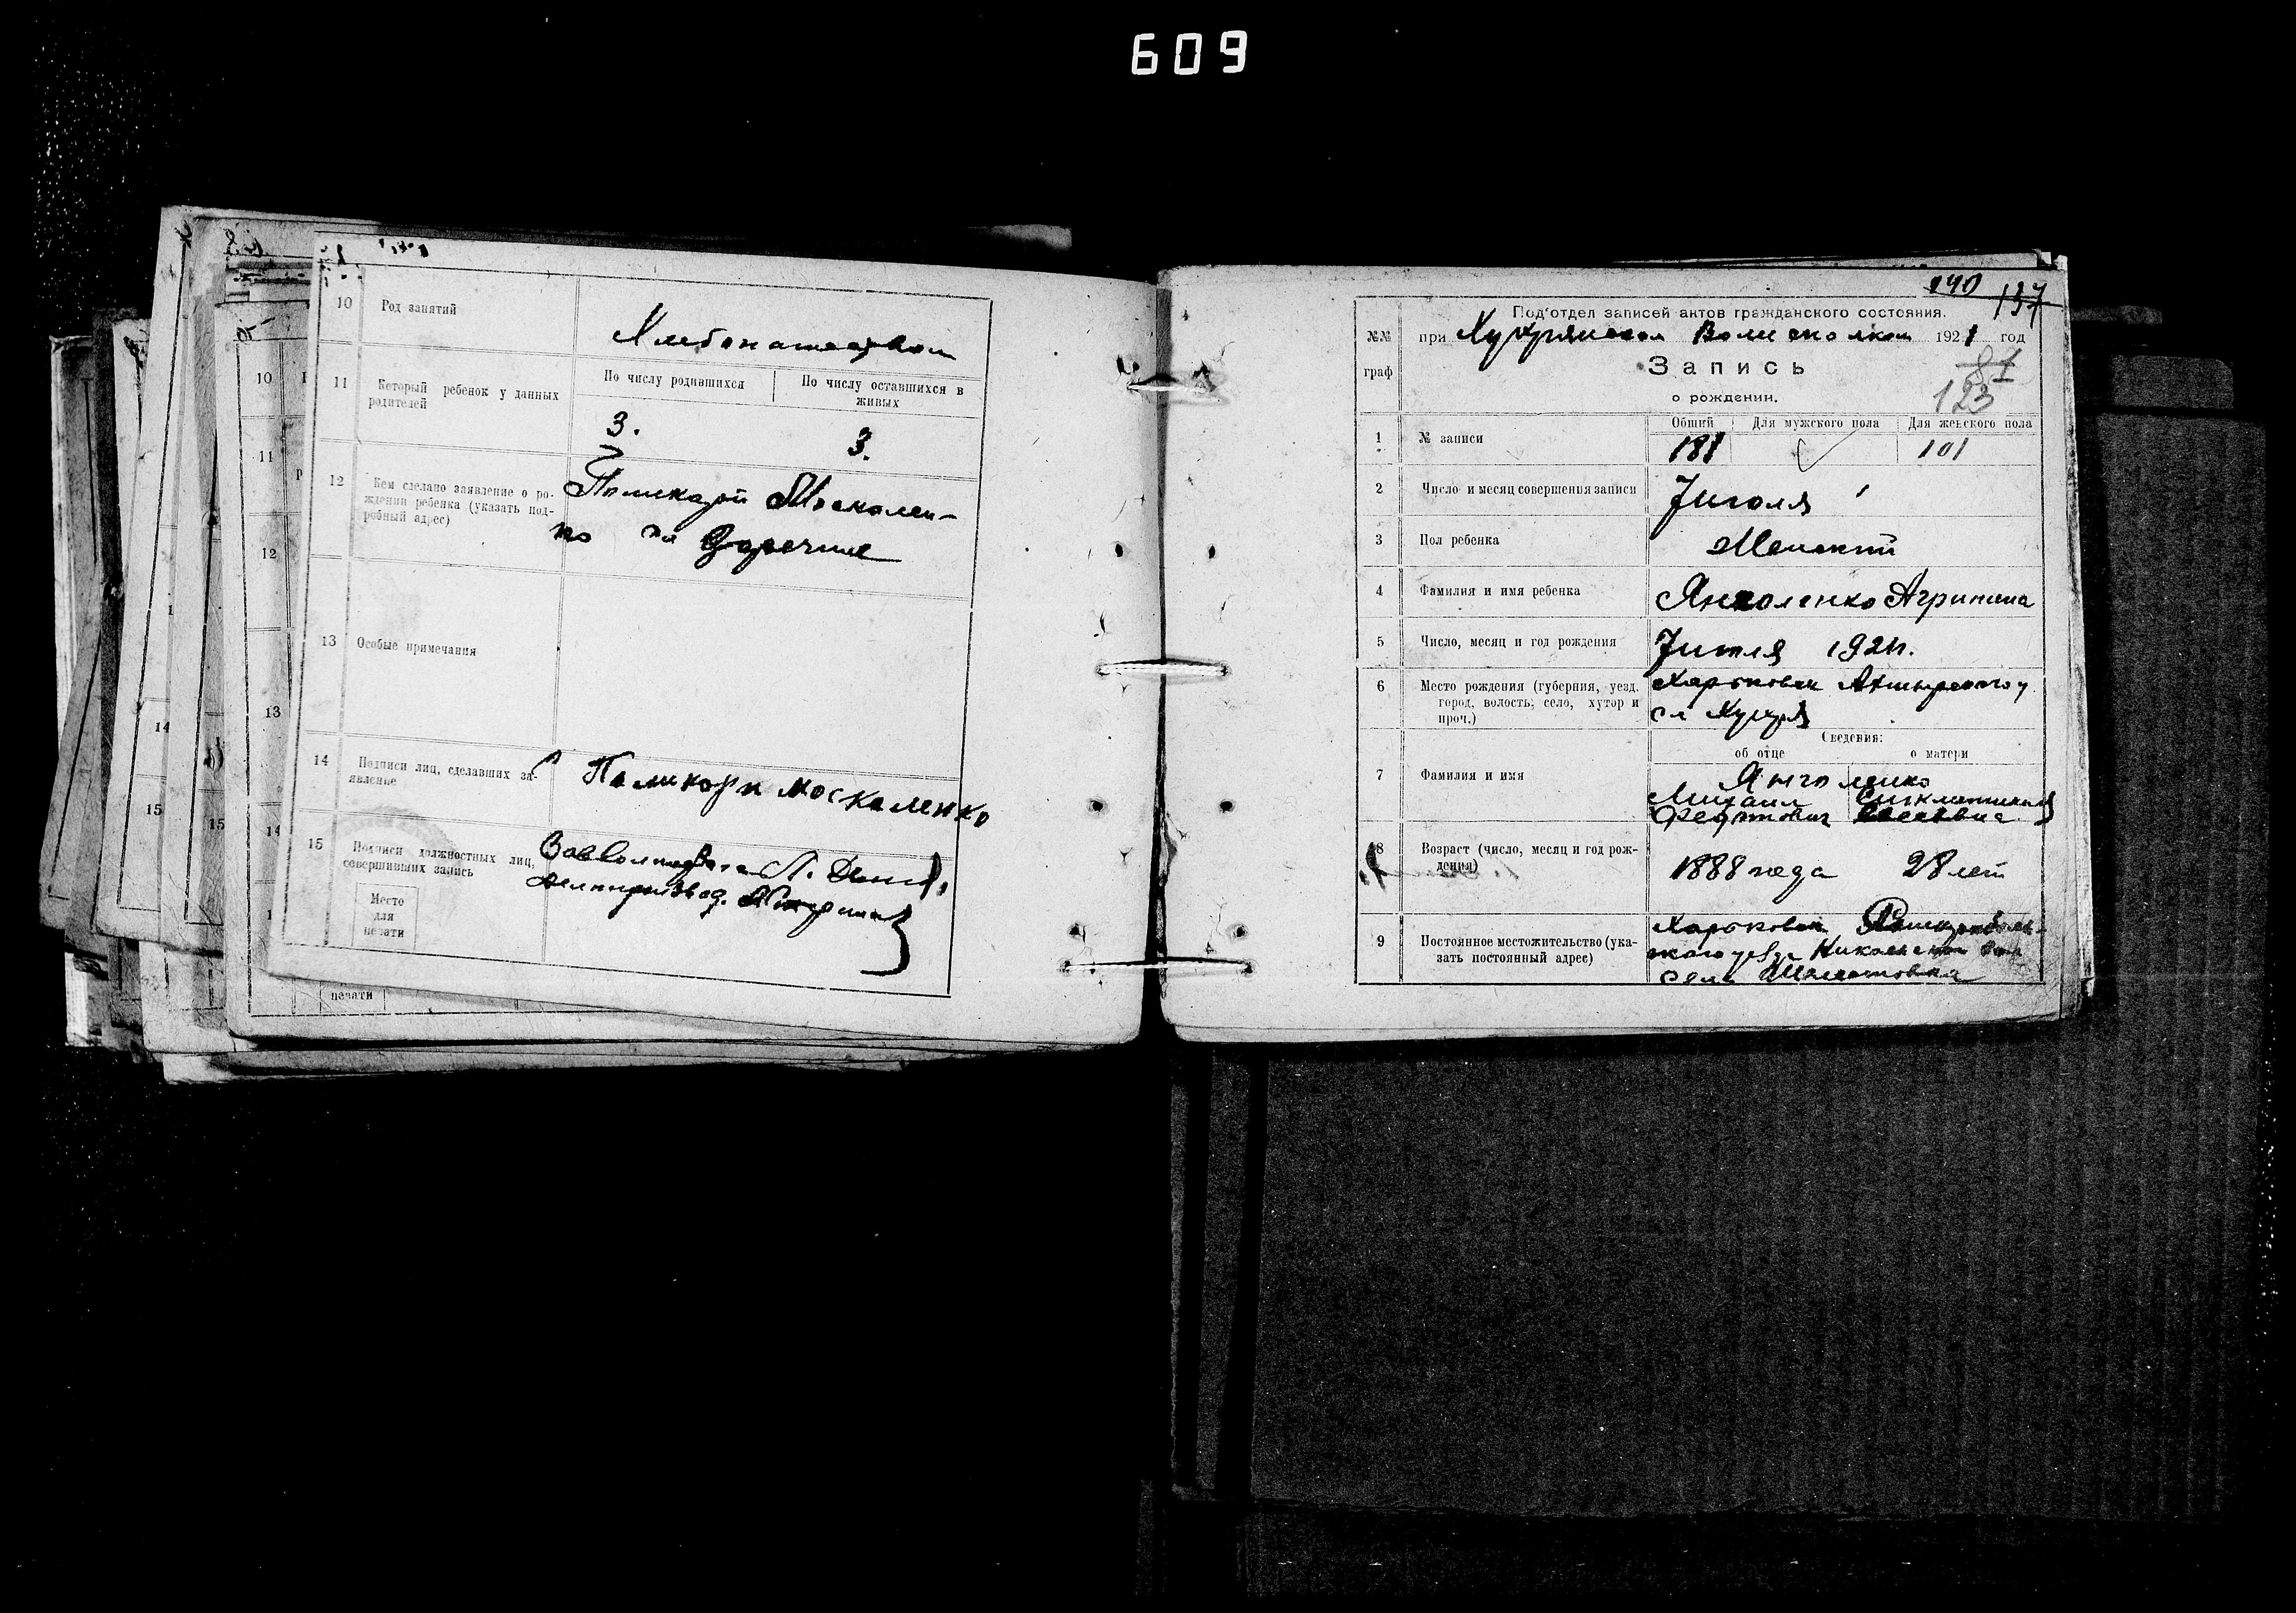 609
10 Род занятий
Хлебопашеством
11 Который ребенок у данных родителей
По числу родившихся По числу оставшихся в живых
3. 3.
12 Кем сделано заявление о ро-
ждении ребенка (указать под-
робный адрес)
Поликарп Москален-
ко Заречние
13 Особые примечания
14 Подписи лиц, сделавших за-
явление
Паликорп москаленко
15 Подписи должностных лиц,
совершивших запись
Л.
Делопризвод.
Место
для
печати
10
11
12
13
14
15
печати
140 137
Под'отдел записей актов гражданского состояния.
№№ граф
при Хухрянском Волисполком 1921 год
Запись
о рождении.
87
123
Общий Для мужского пола Для женского пола
1 № записи 181 101
2 Число и месяц совершения записи Июля 1
3 Пол ребенка Женский
4 Фамилия и имя ребенка Агрипина
5 Число, месяц и год рождения 192
6 Место рождения (губерния, уезд,
город, волость, село, хутор и
проч.)
Харьковск Ахтырского у
сл Хухря
Сведения:
об отце о матери
7 Фамилия и имя
Михаил
Федотович
8 Возраст (число, месяц и год рож-
дения)
1888 года 28 лет
9 Постоянное местожительство (ука-
зать постоянный адрес)
Харьковск
Никольской вол
села